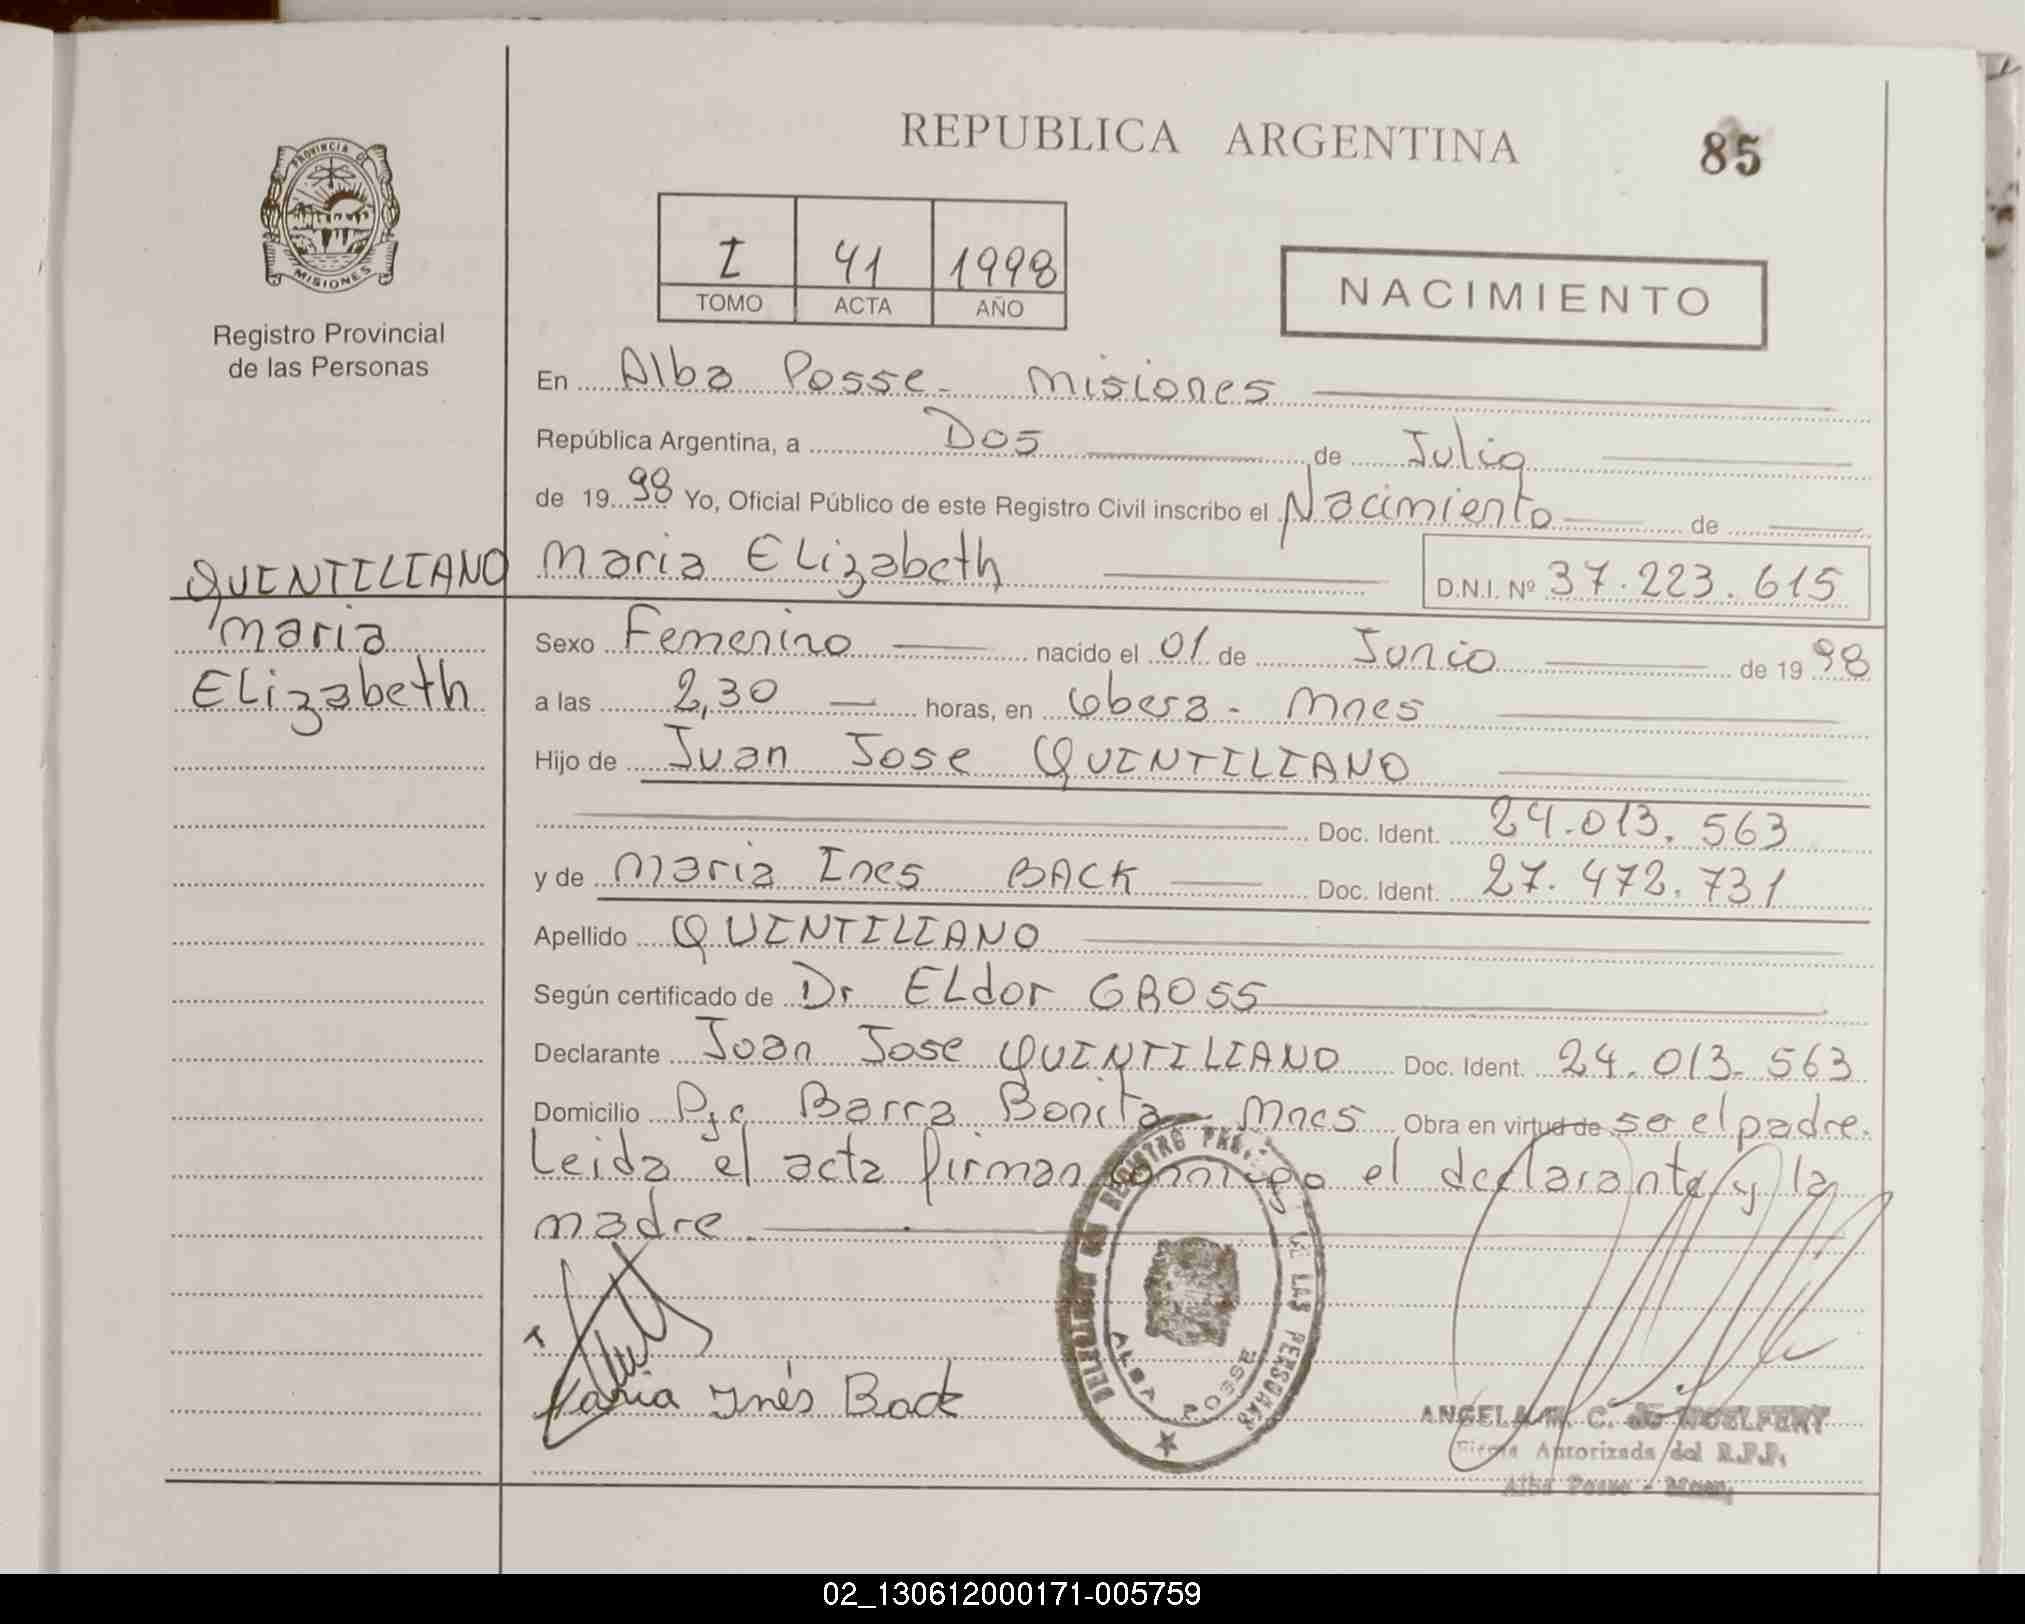 REPUBLICA ARGENTINA
85
PROVINCIA D
MISIONES
Registro Provincial
de las Personas
I 41 1998
TOMO ACTA AÑO
NACIMIENTO
En Alba Posse - Misiones
República Argentina, a Dos de Julio
de 19 98 Yo, Oficial Público de este Registro Civil inscribo el Nacimiento de
QUINTILIANO Maria Elizabeth D.N.I. Nº 37.223.615
Maria
Elizabeth
Sexo Femenino nacido el 01 de Junio de 19 98
a las 2,30 horas, en Obera - Mnes
Hijo de Juan Jose QUINTILIANO
Doc. Ident. 24.013.563
y de Maria Ines BACK Doc. Ident. 27.472.731
Apellido QUINTILIANO
Según certificado de Dr ELdor GROSS
Declarante Juan Jose QUINTILIANO Doc. Ident. 24.013.563
Domicilio Pje Barra Bonita - Mnes Obra en virtud de ser el padre.
Leida el acta firman conmigo el declarante y la
madre.
REGISTRO DE LAS PERSONAS
ALBA POSSE
Maria Inés Back
ANGELA M. C. de WOELFERT
Firma Autorizada del R.P.P.
Alba Posse - Mnes.
02_130612000171-005759